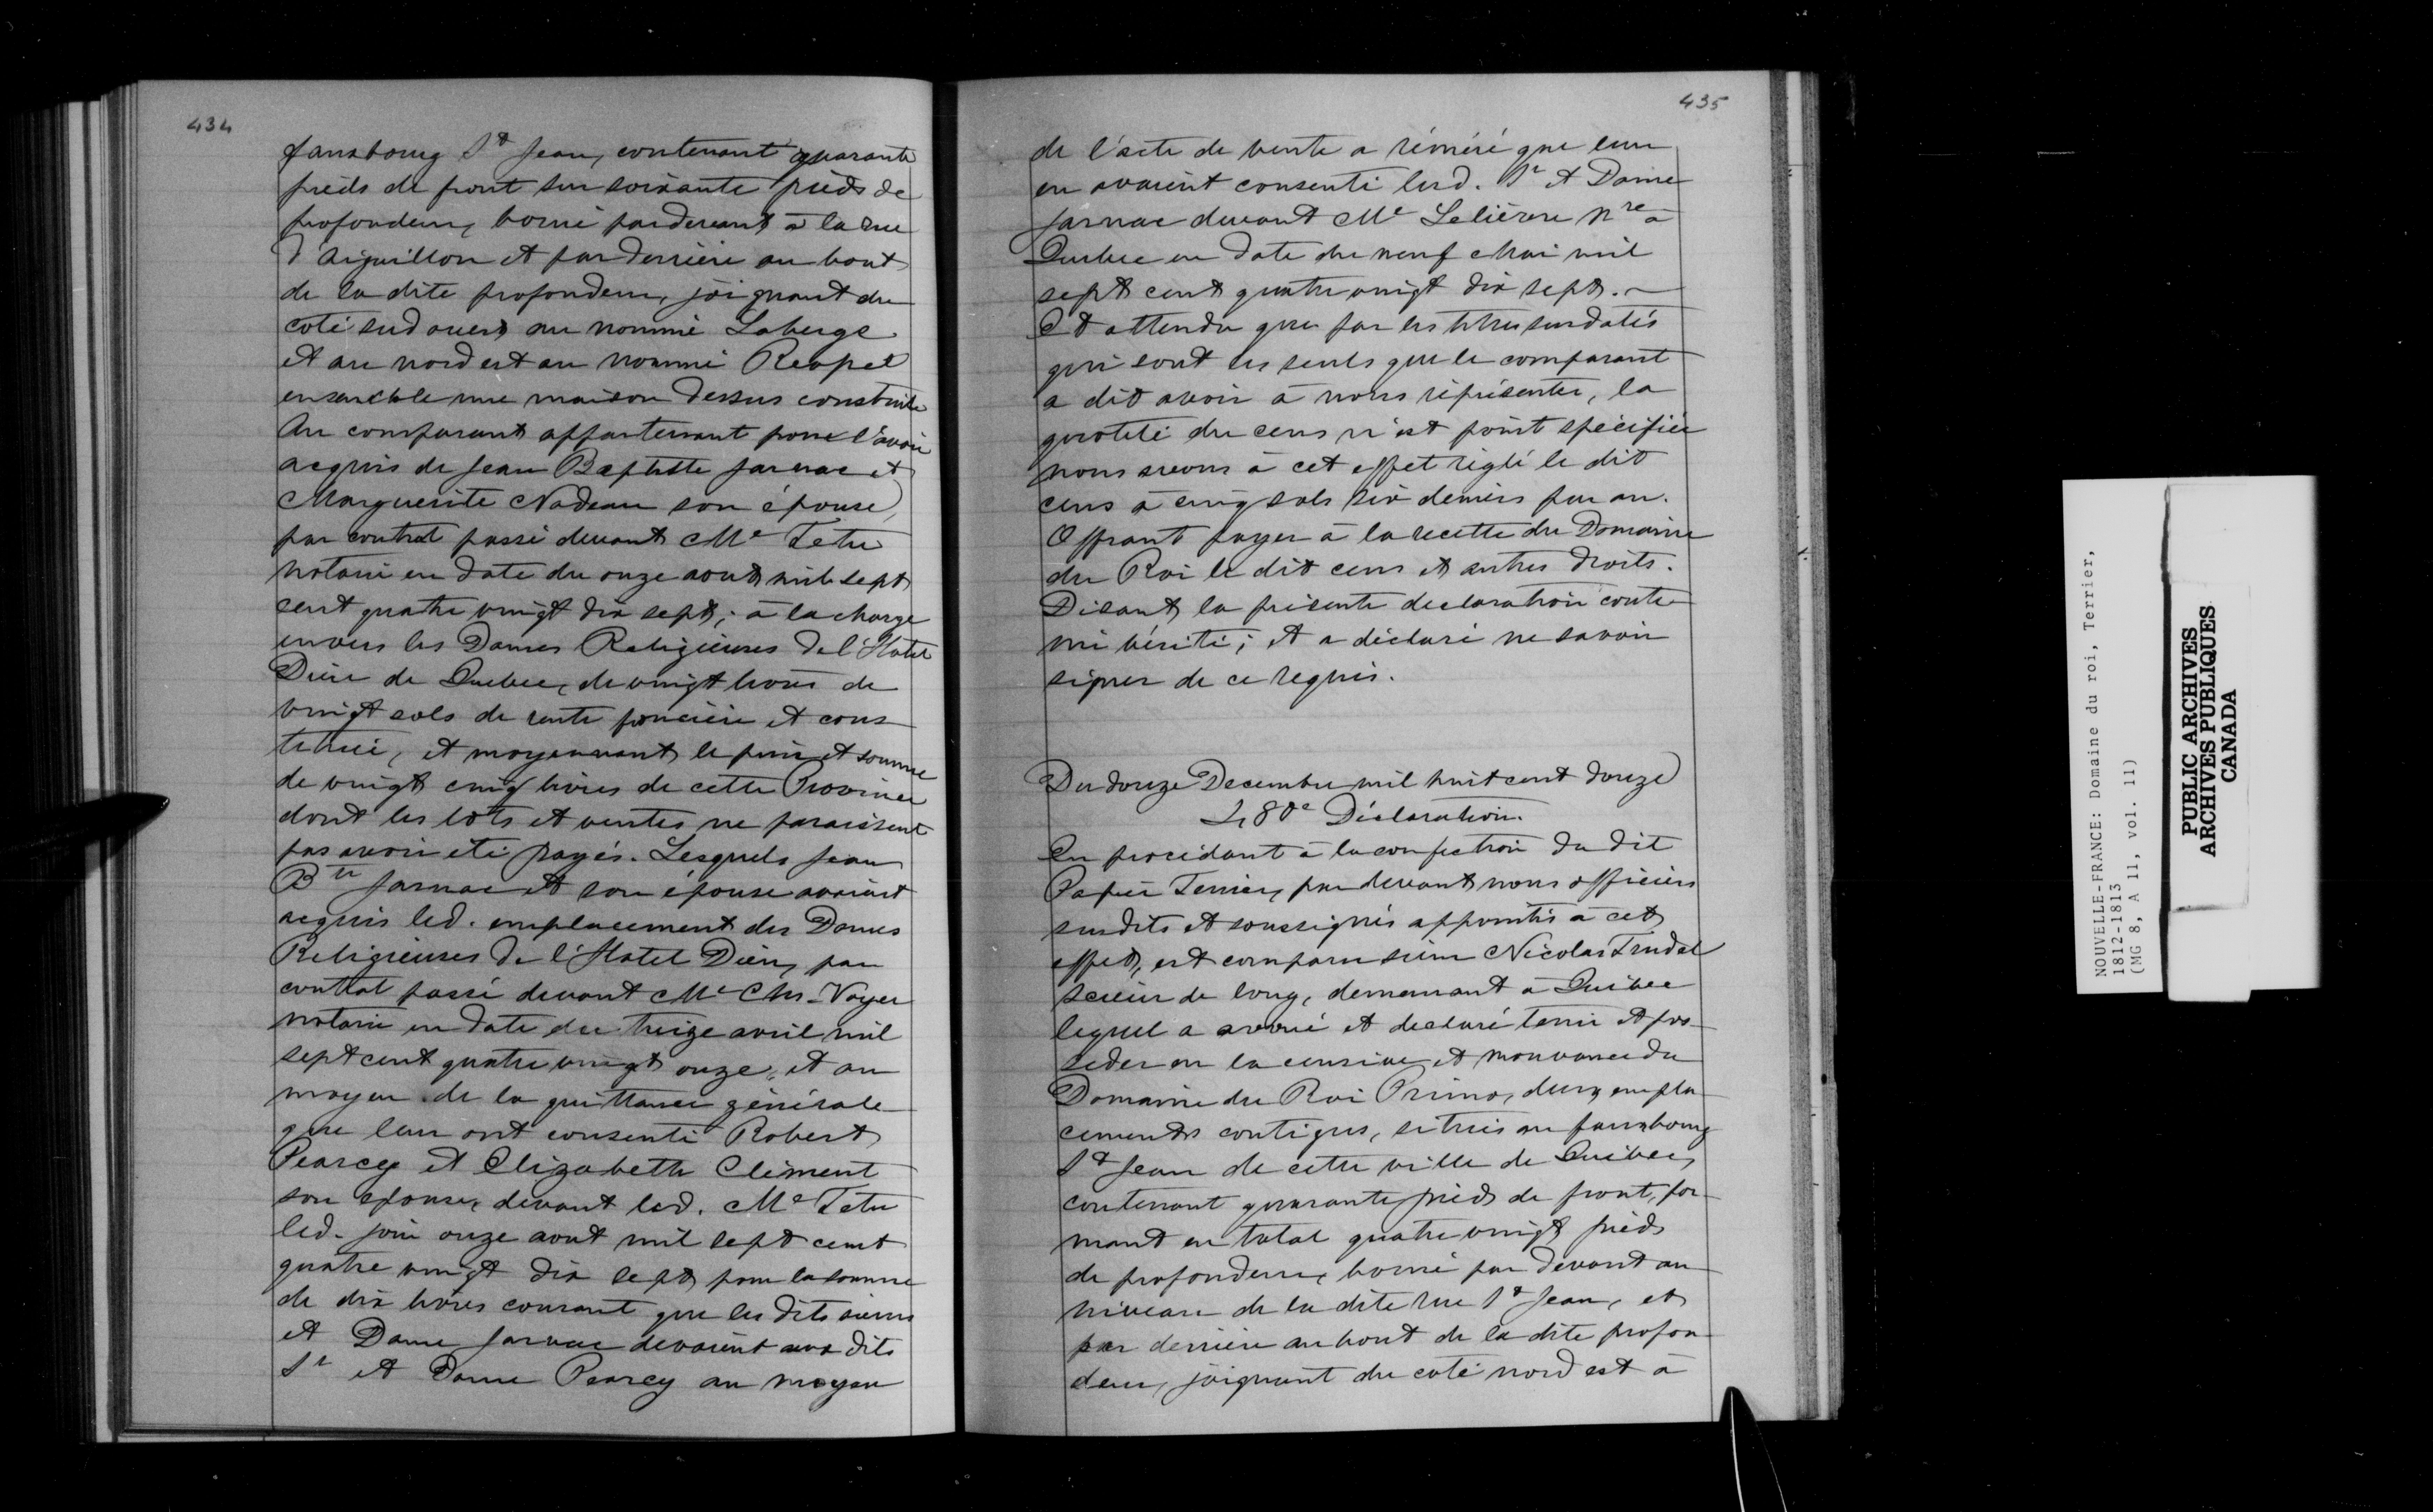 434
fauxbourg St Jean, contenant quarante
pieds de front sur soixante pieds de
profondeur, borné pardevant à la rue
d'aiguillon et par derrière au bout
de la dite profondeur, joignant du
coté sud ouest au nommé Laberge
et au nord est au nommé Reapel
ensemble une maison dessus construite
Au comparant appartenant pour l'avoir
acquis de Jean Baptiste Jarnac et
Marguerite Nadeau son épouse,
par contrat passé devant Me Tetu
notaire en date du onze aout mil sept
cent quatre vingt dix sept; à la charge
envers les Dames Religieuses de l'Hotel
Dieu de Quebec, de vingt livres de
vingt sols de rente foncière et cons
tituée, et moyennant le prix et somme
de vingt cinq livres de cette Province
dont les lots et ventes ne paraissent
pas avoir été payés. Lesquels Jean
Bte Jarnac et son épouse avaient
acquis led. emplacement des Dames
Religieuses de l'Hotel Dieu, par
contrat passé devant Me Chs. Voyer
notaire en date du treize avril mil
sept cent quatre vingt onze, et au
moyen de la quittance générale
que leur ont consenti Robert
Pearcy et Elizabeth Clément
son épouse, devant led. Me Tetu
led. jour onze aout mil sept cent
quatre vingt dix sept, pour la somme
de dix livres courant que les dits sieur
et Dame Jarnac devaient aux dits
Sr et Dame Pearcy au moyen
435
de l'acte de vente a réméré que leur
en avaient consenti lesd. Sr et Dame
Jarnac devant Me Lelièvre Nre à
Quebec en date du neuf Mai mil
sept cent quatre vingt dix sept.
Et attendu que par les titres susdatés
qui sont les seuls que le comparant
a dit avoir à nous représenter, la
quotité du cens n'est point spécifiée
nous avons à cet effet réglé le dit
cens à cinq sols six deniers par an.
Offrant payer à la recette du Domaine
du Roi le dit cens et autres droits.
Disant la présente declaration conte-
nir vérité; et a déclaré ne savoir
signer de ce requis.
Du douze Decembre mil huit cent douze
480e Déclaration.
En procédant à la confection du dit
Papier Terrier, par devant nous officiers
susdits et soussignés appointés à cet
effet, est comparu sieur Nicolas Trudel
scieur de long, demeurant à Québec
lequel a avoué et declaré tenir et pos-
seder en la censive et mouvance du
Domaine du Roi Primo, deux empla-
cements contigus, situés au fauxbourg
St Jean de cette ville de Québec,
contenant quarante pieds de front, for-
mant en total quatre vingt pieds
de profondeur, borné par devant au
niveau de la dite rue St Jean, et
par derrière au bout de la dite profon-
deur, joignant du coté nord est à
NOUVELLE-FRANCE: Domaine du roi, Terrier,
1812-1813
(MG 8, A 11, vol. 11)
PUBLIC ARCHIVES
ARCHIVES PUBLIQUES
CANADA